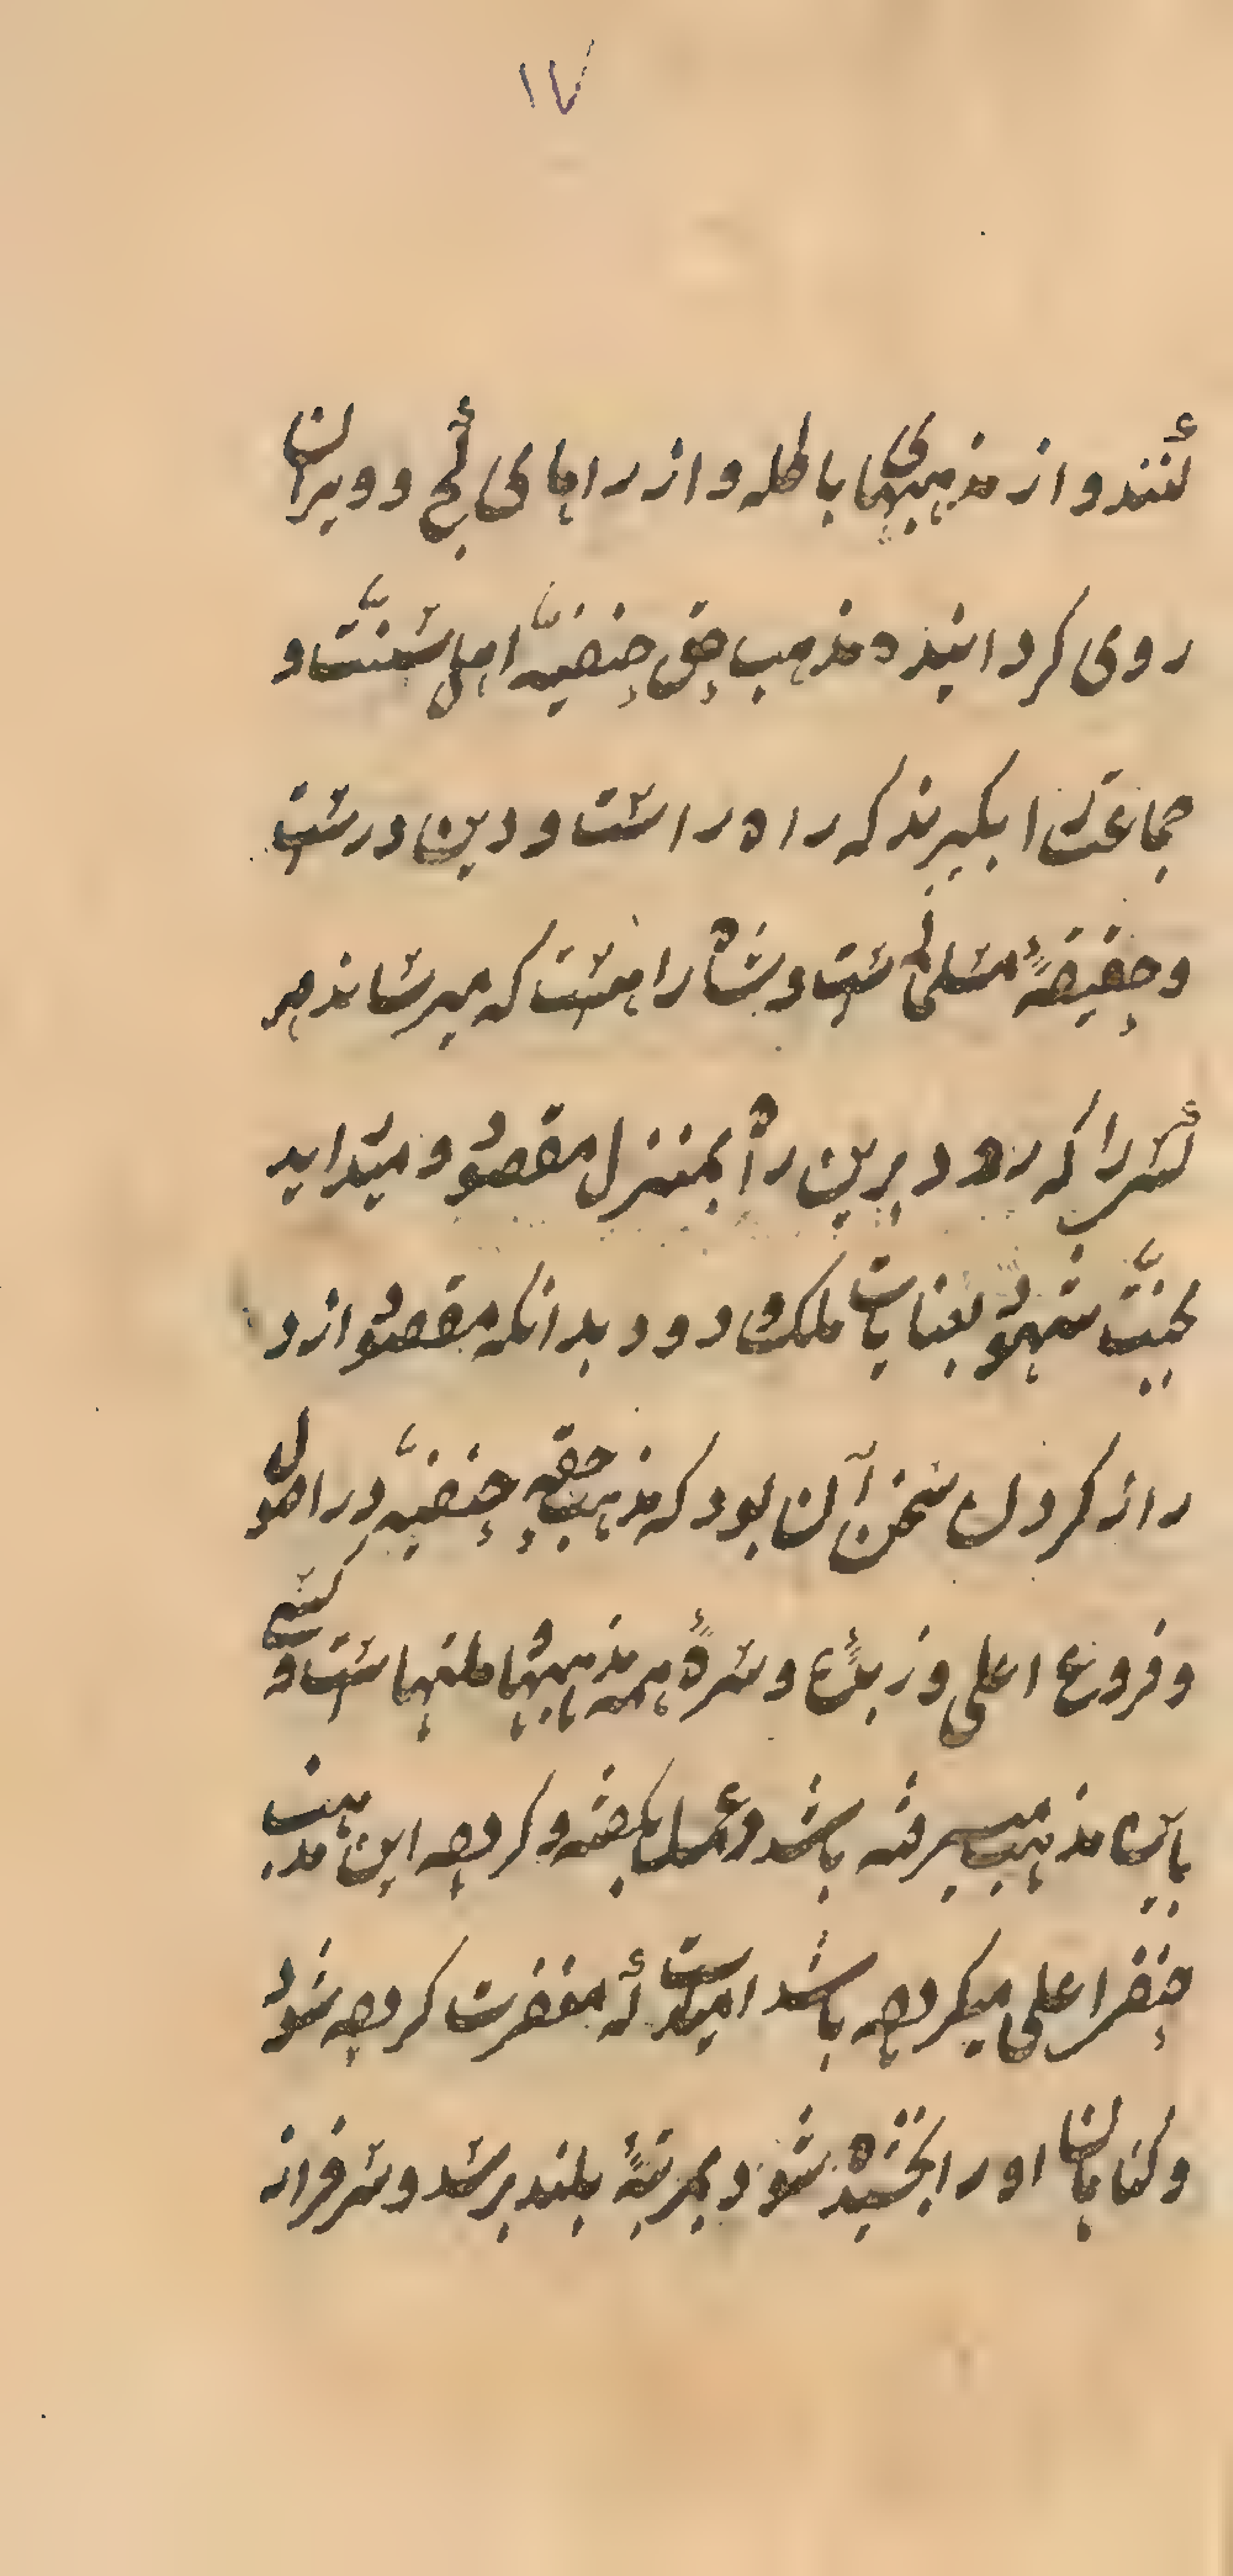 ١٧
كنند و از مذهبهای باطله و از راهای كج و ویران
روی كردانیده مذهب حق حنفیّه اهل سنّت و
جماعت را بكیرند كه راه راست و دین درست
و حقیقة مثلی است و شاه راهست كه میرساند هر
كس را كه رود برین راه بمنزل مقصود و میدراید
بجنّت شهود بعنایات ملك ودود بدانكه مقصود از د
راز كردن سخن آن بود كه مذهب حقه حنفیّه در اصول
و فروع اعلی و زبدهٔ و سرهٔ همه مذهبها و ملتهاست و كسی
باین مذهب میرفته باشد و عمل بكفته و كرده این مذهب
حنفرا علی میكرده باشد امیدست كه مغفرت كرده شود
و كناهان او را بخشیده شود و بمرتبهٔ بلند برسد و سرفراز